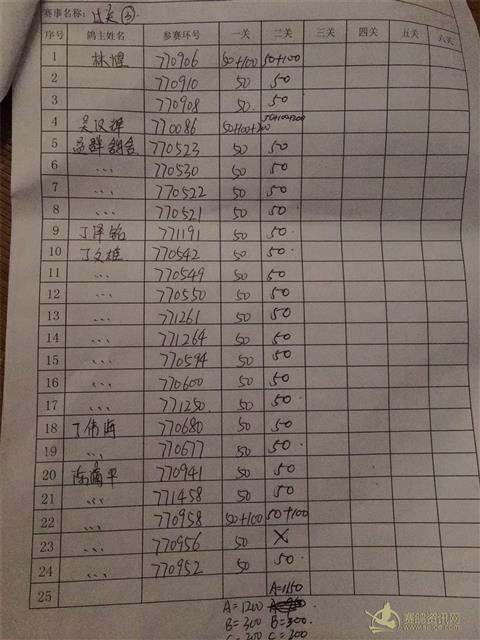 赛事名称: 过关 ③
序号 鸽主姓名 参赛环号 一关 二关 三关 四关 五关 六关
1 林煌 770906 50+100 50+100
2 770910 50 50
3 770908 50 50
4 吴汉辉 770086 50+100+200 50+100+200
5 770523 50 50
6 ... 770530 50 50
7 ... 770522 50 50
8 ... 770521 50 50
9 丁泽铭 771191 50 50
10 丁文雄 770542 50 50
11 ... 770549 50 50
12 ... 770550 50 50
13 ... 771261 50 50
14 ... 771264 50 50
15 ... 770594 50 50
16 ... 770600 50 50
17 ... 771250 50 50
18 丁伟 770680 50 50
19 ... 770677 50 50
20 平 770941 50 50
21 ... 771458 50 50
22 ... 770958 50+100 50+100
23 ... 770956 50 X
24 ... 770952 50 50
25 A=1150
A=1200
B=300 B=300
C=200 C=200
赛鸽资讯网